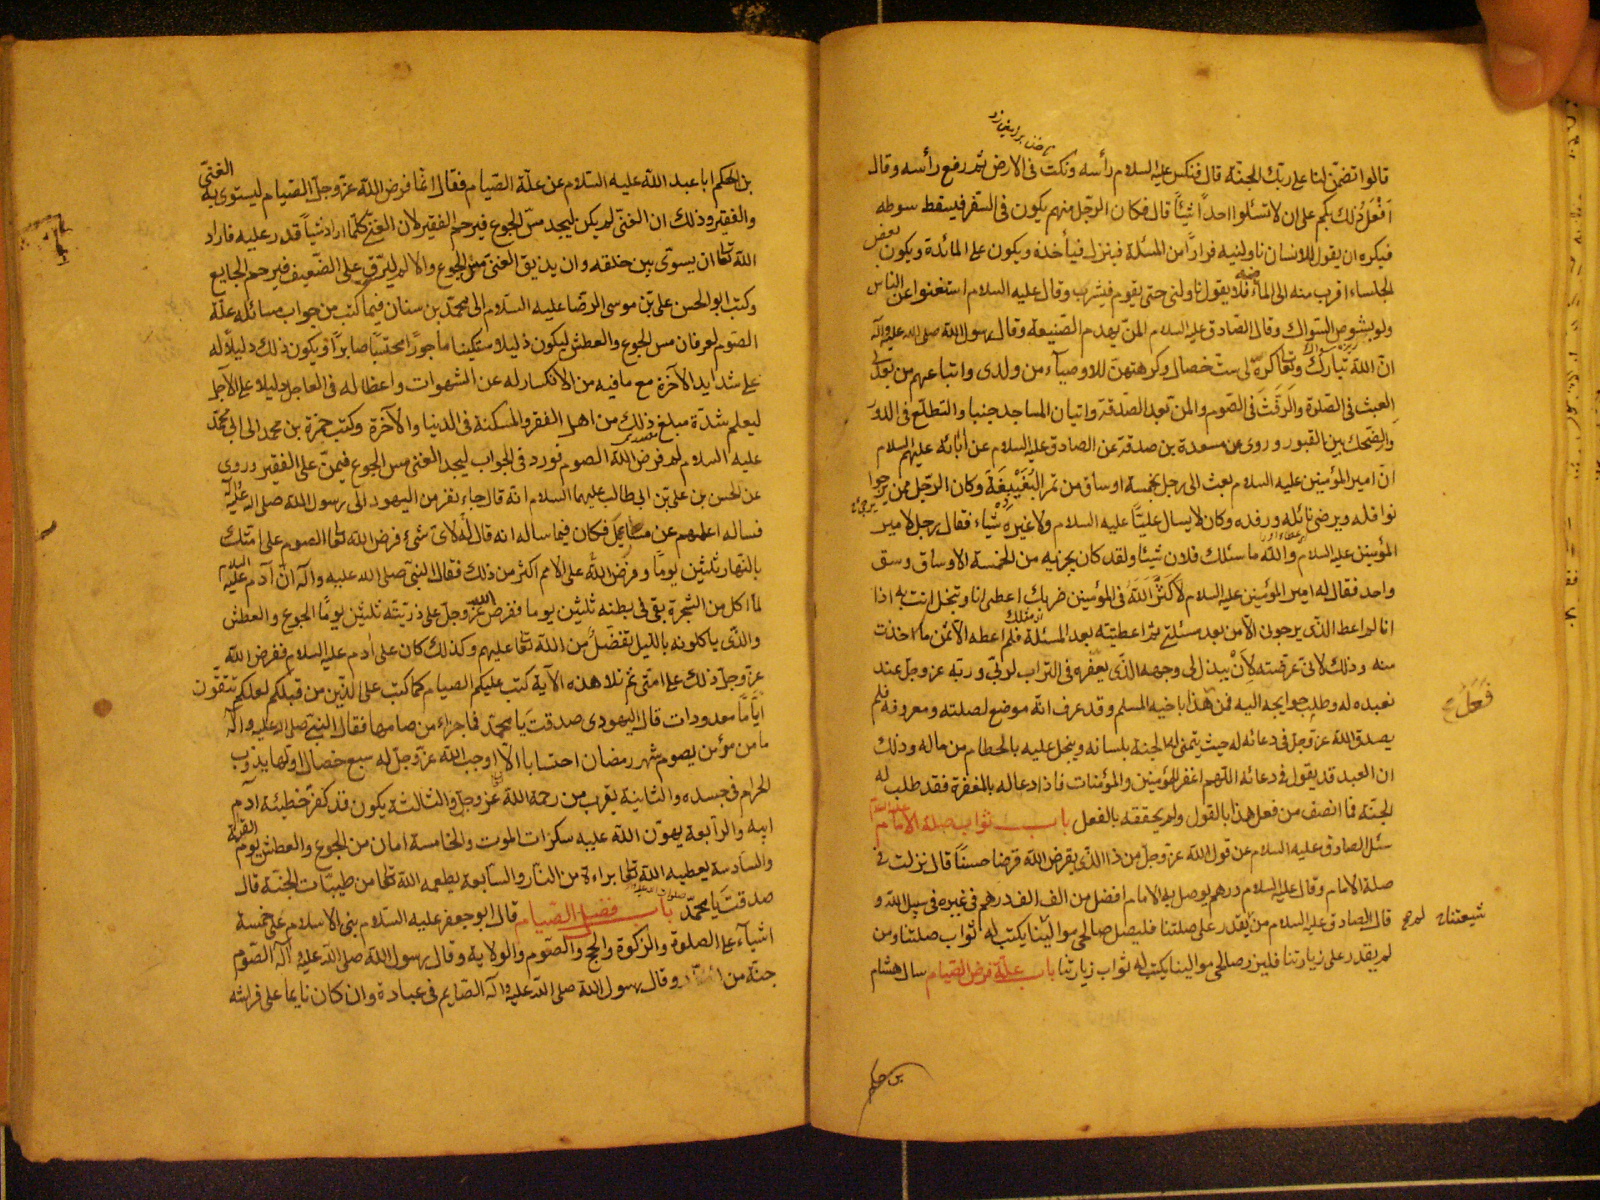 قالوا تضمن لنا على ربك الجنة قال فنكس عليه السلام رأسه ونكت في الارض ثم رفع رأسه وقال
افعل ذلك بكم على ان لا تسئلوا احدا شيئا قال فكان الرجل منهم يكون في السفر فيسقط سوطه
فيكره ان يقول للانسان ناولنيه فرارا من المسئلة فينزل فيأخذه ويكون على المائدة ويكون بعض
الجلساء اقرب منه الى الماء فلا يقول ناولنى حتى يقوم فيشرب وقال عليه السلام استغنوا عن الناس
ولو بشوص السواك وقال الصادق عليه السلام المن يهدم الصنيعة وقال رسول الله صلى الله عليه وآله
ان الله تبارك وتعا كره لى ست خصال وكرهتهن للاوصياء من ولدى واتباعهم من بعدى
العبث في الصلوة والرفث في الصوم والمن بعد الصدقة واتيان المساجد جنبا والتطلع في الدور
والضحك بين القبور وروى عن مسعدة بن صدقة عن الصادق عليه السلام عن آبائه عليهم السلام
ان امير المؤمنين عليه السلام بعث الى رجل بخمسة اوساق من تمر البغيبغة وكان الرجل ممن يرجوا
نوافله ويرضى نائله ورفده وكان لا يسال عليا عليه السلام ولا غيره شياء فقال رجل لامير
المؤمنين عليه السلام والله ما سئلك فلان شيئا ولقد كان يجزيه من الخمسة الاوساق وسق
واحد فقال له امير المؤمنين عليه السلام لا كثر الله في المؤمنين ضربك اعطى انا وتبخل انت به اذا
انا لم اعط الذى يرجونى الا من بعد مسئلتى ثم اعطيته بعد المسئلة فلم اعطه الا ثمن ما اخذت
منه وذلك لانى عرضته لان يبذل لى وجهه الذى يعفره في التراب لربى وربه عز وجل عند
تعبده له وطلب حوايجه اليه فمن فعل هذا باخيه المسلم وقد عرف انه موضع لصلته ومعروفه فلم
يصدق الله عز وجل في دعائه له حيث يتمنى له الجنة بلسانه ويبخل عليه بالحطام من ماله وذلك
ان العبد قد يقول في دعائه اللهم اغفر للمؤمنين والمؤمنات فاذا دعا له بالمغفرة فقد طلب له
الجنة فما انصف من فعل هذا بالقول ولم يحققه بالفعل باب ثواب صلة الامام عليه السلام
سئل الصادق عليه السلام عن قول الله عز وجل من ذا الذى يقرض الله قرضا حسنا قال نزلت في
صلة الامام وقال عليه السلام درهم يوصل به الامام افضل من الف الف درهم في غيره في سبيل الله و
قال الصادق عليه السلام من لم يقدر على صلتنا فليصل صالحى موالينا يكتب له ثواب صلتنا ومن
لم يقدر على زيارتنا فليزر صالحى موالينا يكتب له ثواب زيارتنا باب علة فرض الصيام سال هشام
شيعتنا
بن حكم
بن الحكم ابا عبد الله عليه السلام عن علة الصيام فقال انما فرض الله عز وجل الصيام ليستوى به الغنى
والفقير وذلك ان الغنى لم يكن ليجد مس الجوع فيرحم الفقير لان الغنى كلما اراد شيئا قدر عليه فاراد
الله تعا ان يسوى بين خلقه وان يذيق الغنى مس الجوع والالم ليرق على الضعيف فيرحم الجايع
وكتب ابو الحسن على بن موسى الرضا عليه السلام الى محمد بن سنان فيما كتب من جواب مسائله علة
الصوم لعرفان مس الجوع والعطش ليكون ذليلا مستكينا ماجورا محتسبا صابرا ويكون ذلك دليلا له
على شدايد الآخرة مع ما فيه من الانكسار له عن الشهوات واعظا له في العاجل دليلا على الآجل
ليعلم شدة مبلغ ذلك من اهل الفقر والمسكنة في الدنيا والآخرة وكتب حمزة بن محمد الى ابى محمد
عليه السلام لم فرض الله الصوم فورد في الجواب ليجد الغنى مس الجوع فيمن على الفقير وروى
عن الحسن بن على بن ابى طالب عليهما السلام انه قال جاء نفر من اليهود الى رسول الله صلى الله عليه وآله
فساله اعلمهم عن مسايل فكان فيما ساله انه قال له لاى شىء فرض الله تعا الصوم على امتك
بالنهار ثلثين يوما وفرض الله على الامم اكثر من ذلك فقال النبى صلى الله عليه وآله ان آدم عليه السلام
لما اكل من الشجرة بقى في بطنه ثلثين يوما ففرض الله عز وجل على ذريته ثلثين يوما الجوع والعطش
والذى ياكلونه بالليل تفضل من الله تعا عليهم وكذلك كان على آدم عليه السلام ففرض الله
عز وجل ذلك على امتى ثم تلا هذه الآية كتب عليكم الصيام كما كتب على الذين من قبلكم لعلكم تتقون
اياما معدودات قال اليهودى صدقت يا محمد فما جزاء من صامها فقال النبى صلى الله عليه وآله
ما من مؤمن يصوم شهر رمضان احتسابا الا اوجب الله عز وجل له سبع خصال اولها يذوب
الحرام في جسده والثانية يقرب من رحمة الله عز وجل والثالثة يكون قد كفر خطيئة آدم
ابيه والرابعة يهون الله عليه سكرات الموت والخامسة امان من الجوع والعطش يوم القيمة
والسادسة يعطيه الله تعا براءة من النار والسابعة يطعمه الله تعا من طيبات الجنة قال
صدقت يا محمد باب فضل الصيام قال ابو جعفر عليه السلام بنى الاسلام على خمسة
اشياء على الصلوة والزكوة والحج والصوم والولاية وقال رسول الله صلى الله عليه وآله الصوم
جنة من النار وقال رسول الله صلى الله عليه وآله الصايم في عبادة وان كان نايما على فراشه